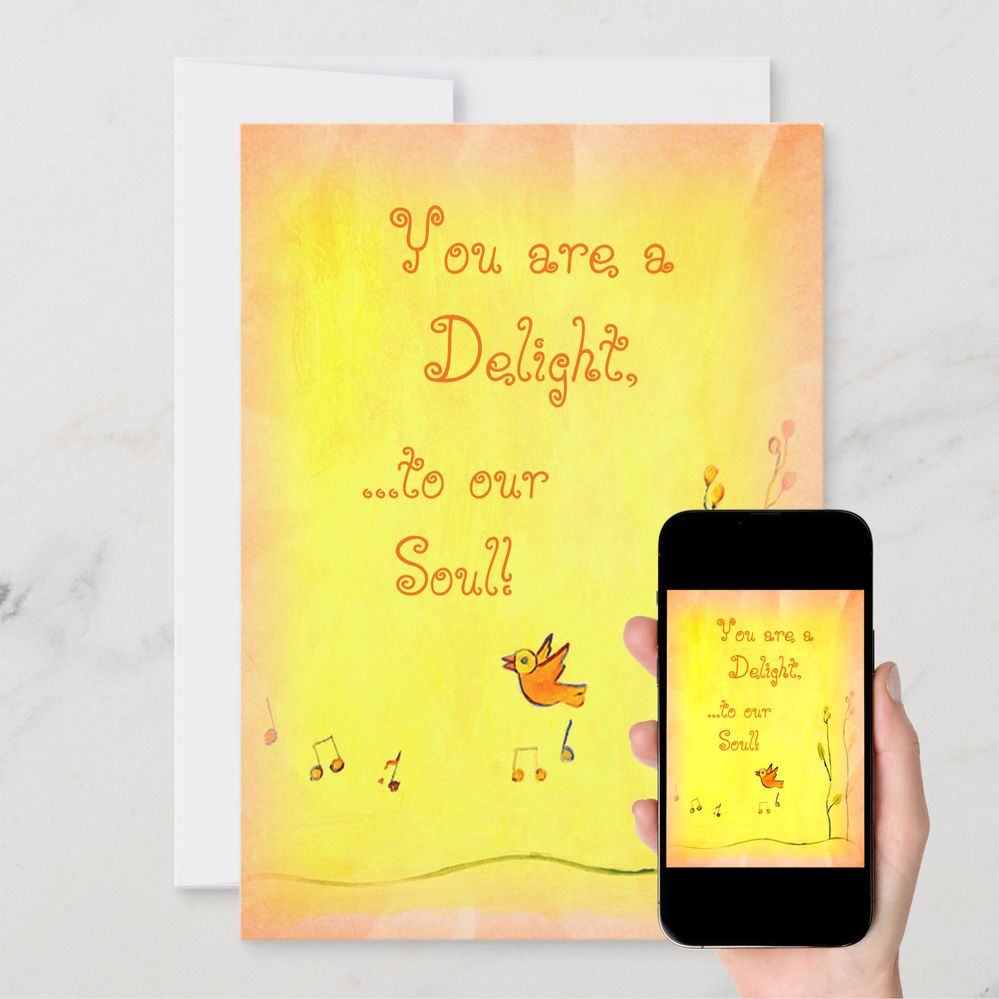 You are a
Delight,
...to our
Soul!
You are a
Delight,
...to our
Soul!